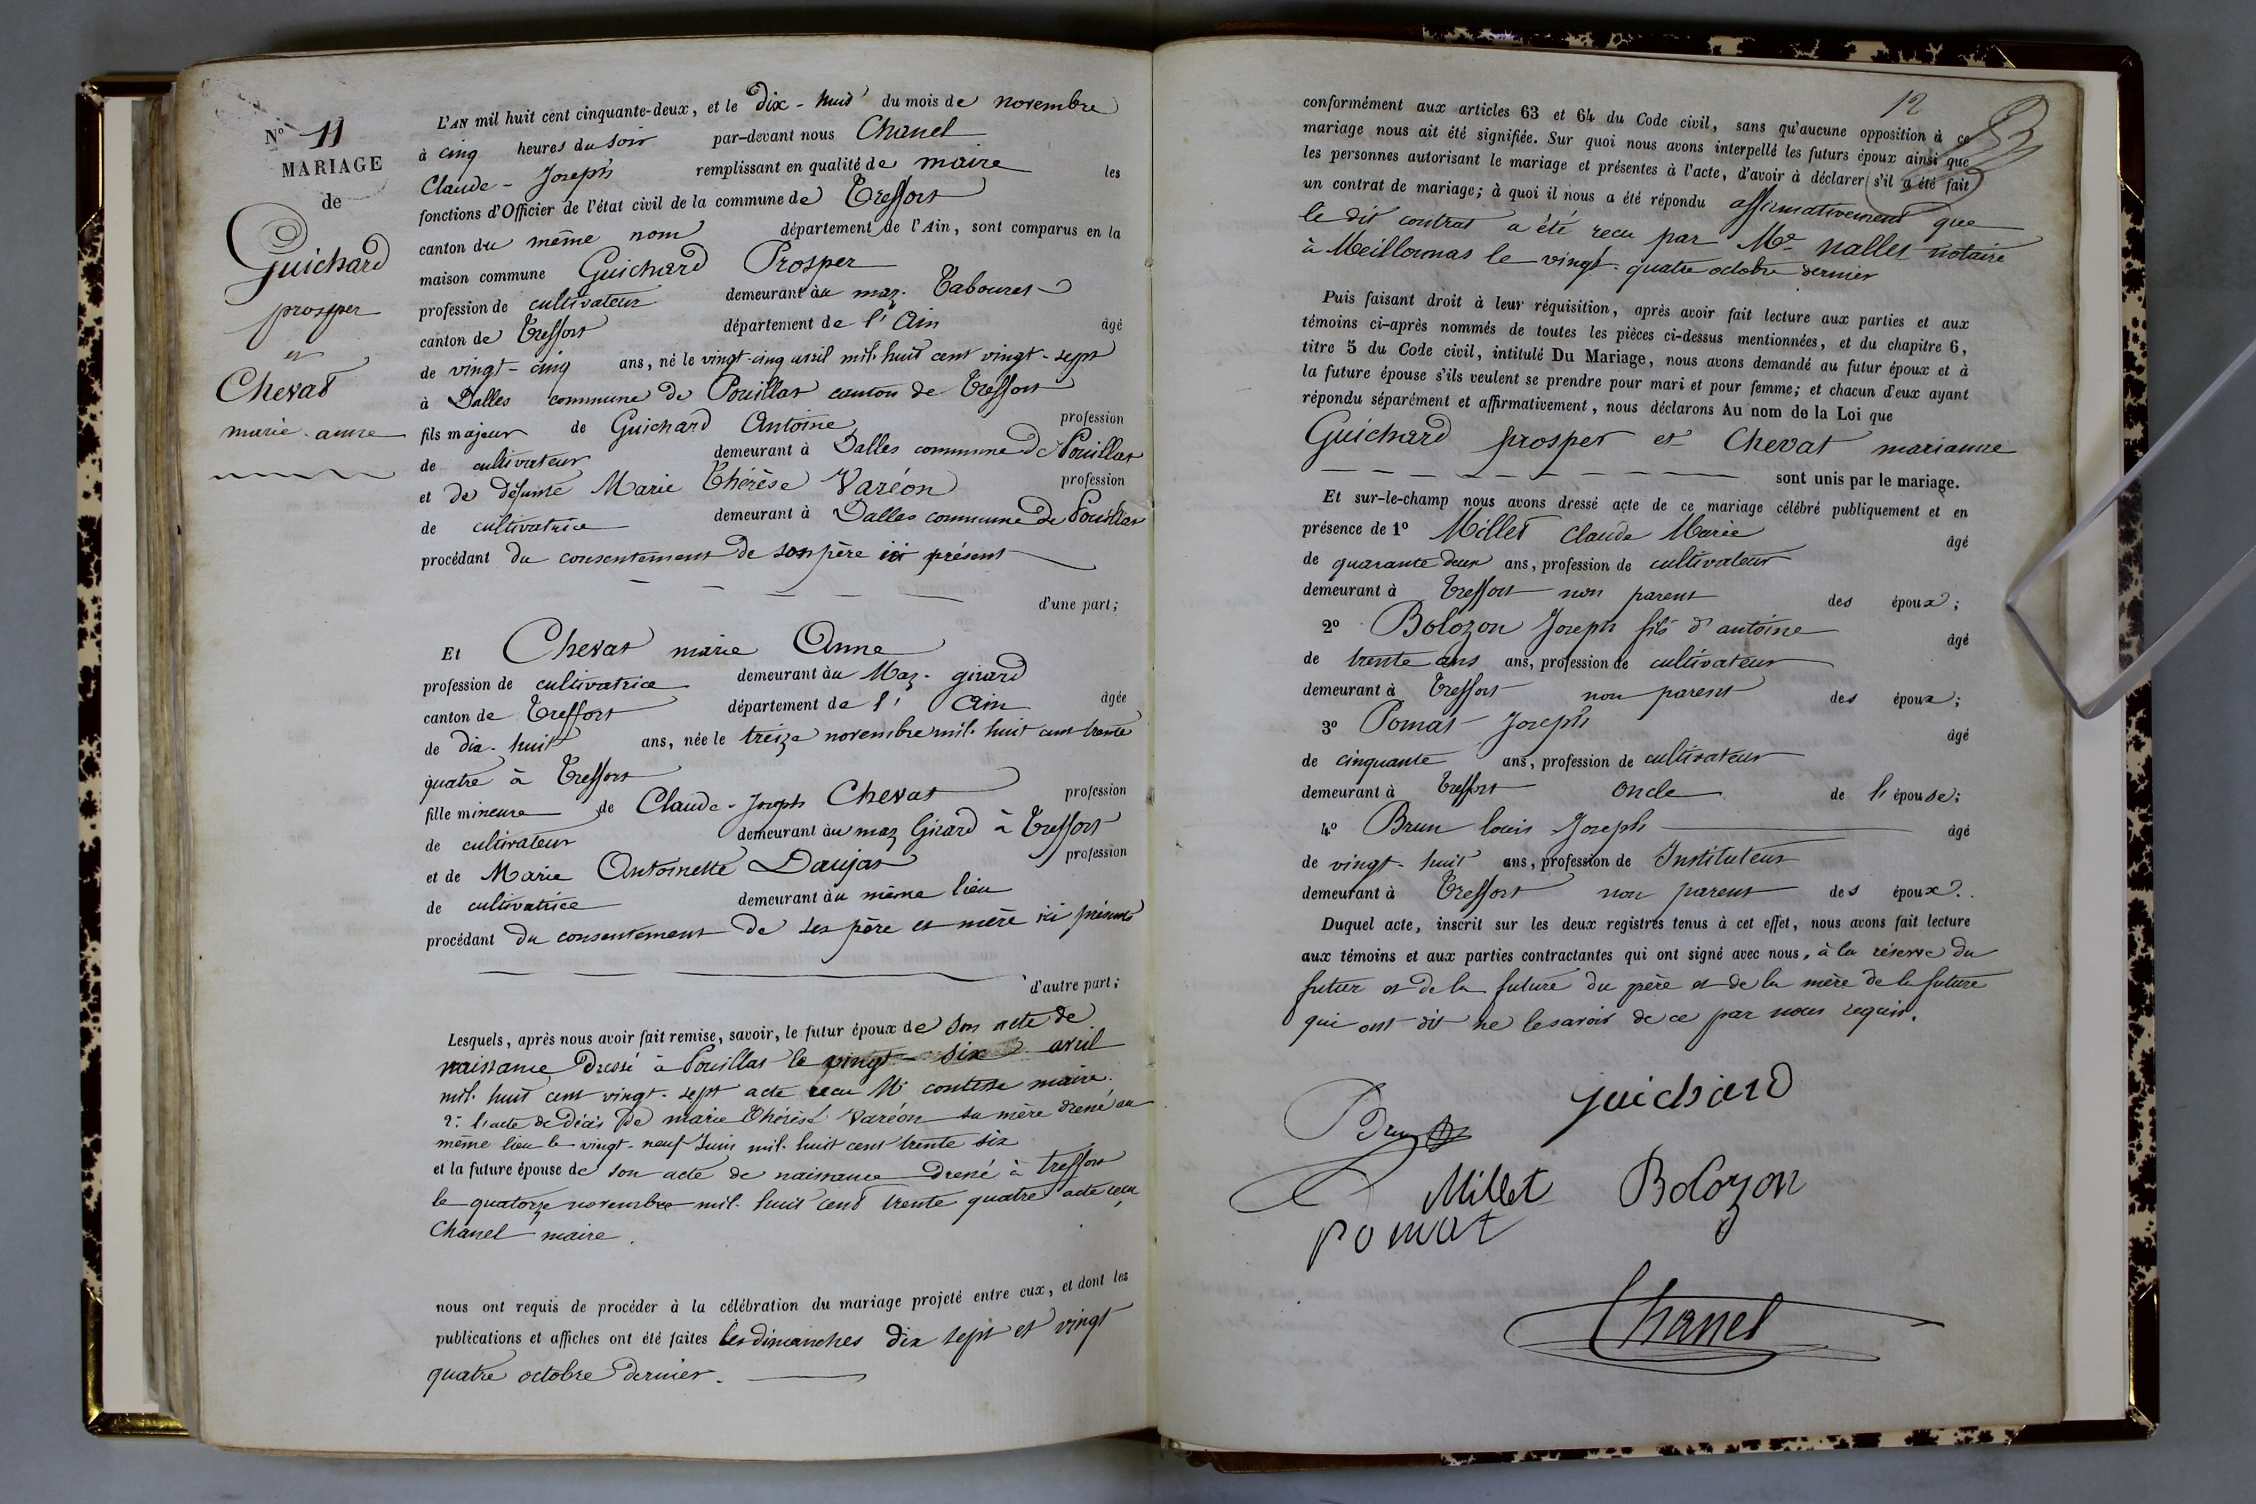 N° 11
MARIAGE
de
Guichard
prosper
et
Chevat
marie-anne
L'AN mil huit cent cinquante-deux, et le dix-huit du mois de novembre
à cinq heures du soir par-devant nous Chanel
Claude-Joseph remplissant en qualité de maire les
fonctions d'Officier de l'état civil de la commune de Treffort
canton du même nom département de l'Ain, sont comparus en la
maison commune Guichard Prosper
profession de cultivateur demeurant au maz. Tabouret
canton de Treffort département de l'Ain âgé
de vingt-cinq ans, né le vingt-cinq avril mil huit cent vingt-sept
à Dalles commune de Pouillat canton de Treffort
fils majeur de Guichard Antoine profession
de cultivateur demeurant à Dalles commune de Pouillat
et de défunte Marie Thérèse Varéon profession
de cultivatrice demeurant à Dalles commune de Pouillat
procédant du consentement de son père ici présent
d'une part;
Et Chevat marie Anne
profession de cultivatrice demeurant au Maz-girard
canton de Treffort département de l'Ain âgée
de dix-huit ans, née le treize novembre mil huit cent trente
quatre à Treffort
fille mineure de Claude-Joseph Chevat profession
de cultivateur demeurant au maz Girard à Treffort
et de Marie Antoinette Daujat profession
de cultivatrice demeurant au même lieu
procédant du consentement de ses père et mère ici présents
d'autre part;
Lesquels, après nous avoir fait remise, savoir, le futur époux de son acte de
naissance dressé à Pouillat le vingt-six avril
mil huit cent vingt-sept acte reçu Mr maire.
2° l'acte de décès de marie Thérèse Varéon sa mère dressé au
même lieu le vingt-neuf Juin mil huit cent trente six
et la future épouse de son acte de naissance dressé à treffort
le quatorze novembre mil huit cent trente quatre acte reçu
Chanel maire.
nous ont requis de procéder à la célébration du mariage projeté entre eux, et dont les
publications et affiches ont été faites les dimanches dix sept et vingt
quatre octobre dernier.
12
conformément aux articles 63 et 64 du Code civil, sans qu'aucune opposition à ce
mariage nous ait été signifiée. Sur quoi nous avons interpellé les futurs époux ainsi que
les personnes autorisant le mariage et présentes à l'acte, d'avoir à déclarer s'il a été fait
un contrat de mariage; à quoi il nous a été répondu affirmativement que
le dit contrat a été reçu par Me nallet notaire
à Meillonnas le vingt-quatre octobre dernier
Puis faisant droit à leur réquisition, après avoir fait lecture aux parties et aux
témoins ci-après nommés de toutes les pièces ci-dessus mentionnées, et du chapitre 6,
titre 5 du Code civil, intitulé Du Mariage, nous avons demandé au futur époux et à
la future épouse s'ils veulent se prendre pour mari et pour femme; et chacun d'eux ayant
répondu séparément et affirmativement, nous déclarons Au nom de la Loi que
Guichard prosper et Chevat marianne
sont unis par le mariage.
Et sur-le-champ nous avons dressé acte de ce mariage célébré publiquement et en
présence de 1° Millet Claude Marie âgé
de quarante deux ans, profession de cultivateur
demeurant à Treffort non parent des époux;
2° Bolozon Joseph fils d'antoine âgé
de trente ans ans, profession de cultivateur
demeurant à Treffort non parent des époux;
3° Pomat Joseph âgé
de cinquante ans, profession de cultivateur
demeurant à Treffort oncle de l'épouse;
4° Brun louis Joseph âgé
de vingt-huit ans, profession de Instituteur
demeurant à Treffort non parent des époux.
Duquel acte, inscrit sur les deux registres tenus à cet effet, nous avons fait lecture
aux témoins et aux parties contractantes qui ont signé avec nous, à la réserve du
futur et de la future du père et de la mère de la future
qui ont dit ne le savoir de ce par nous requis.
guichard
Brun
Millet Bolozon
pomat
Chanel